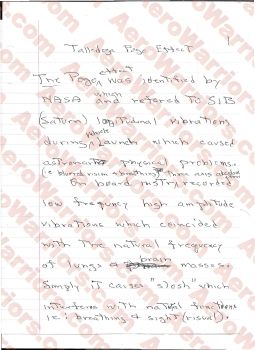 1
Talledega Pogo Effect
effect
The Pogo was identified by
which
NASA and refered to SIB
(Saturn) logitudinal vibrations
vehicle
during launch which caused
astronaut physical problems.
(i.e blured vision & breathing) Three axis
On board instru recorded
low frequency high amplitude
vibrations which coincided
with the natural frequecy
brain
of lungs & masses.
Simply it causes "slosh" which
interferes with natural functions
i.e. breathing & sight (visual).
AeroWarriors.com